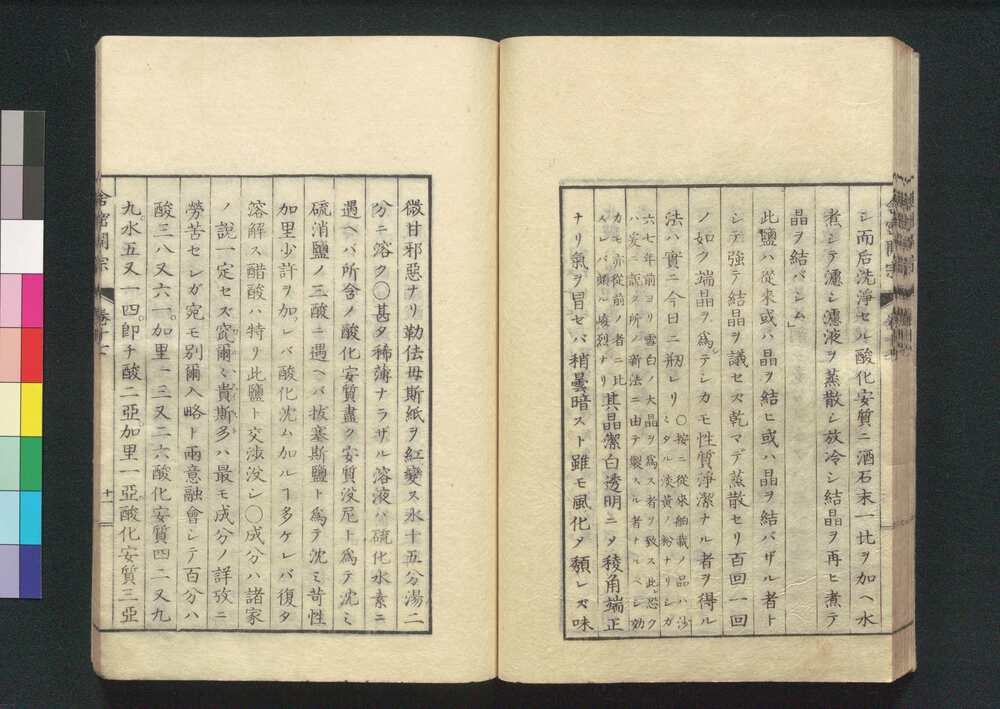 シ而后洗淨セル酸化安質ニ酒石末一比ヲ加ヘ水
煮シテ濾シ濾液ヲ蒸散シ放冷シ結晶ヲ再ヒ煮テ
晶ヲ結バシム」
此鹽ハ從來或ハ晶ヲ結ヒ或ハ晶ヲ結バザル者ト
シテ強テ結晶ヲ議セズ乾マデ蒸散セリ百回一回
ノ如ク端晶ヲ爲シテシカモ性質淨潔ナル者ヲ得ル
法ハ實ニ今日ニ剏レリ
〇按ニ從來舶載ノ品ハ沙
ミタル淡黃ノ粉ナリシガ
六七年前ヨリ雪白ノ大晶ヲ爲ス者ヲ致ス此恐ク
ハ爰ニ説ク所ノ新法ニ由テ製スル者ナルベシ効
力モ亦從前ノ者ニ比
スレバ頗ル峻烈ナリ
其晶潔白透明ニメ稜角端正
ナリ氣ヲ冒セバ稍曇暗スト雖モ風化タ頽レズ味
微甘邪惡ナリ勒佉母斯紙ヲ紅變ス水十五分湯二
分ニ溶ク〇甚タ稀薄ナラザル溶液ハ硫化水素ニ
遇ヘバ所舍ノ酸化安質盡ク安質没尼ト爲テ沈ミ
硫消鹽ノ三酸ニ遇ヘバ拔塞斯鹽ト爲テ沈ミ苛性
加里少許ヲ加レバ酸化沈ム加ルヿ多ケレバ復タ
溶解ス醋酸ハ特リ此鹽ト交渉没シ〇成分ハ諸家
ノ説一定セズ䆴爾ミ貴斯多ハ最モ成分ノ詳攷ニ
勞苦セシガ宛モ別爾入略ト兩意融會シテ百分ハ
酸三八又六一。加里一三又二六酸化安質四二又九
九。水五又一四。卽チ酸二亞。加里一亞。酸化安質三亞
舎密開宗
卷十七
十一